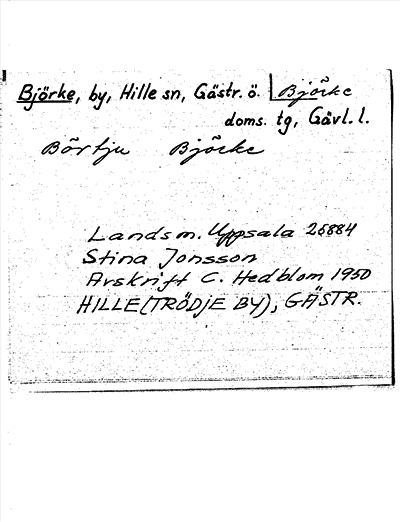 Björke, by, Hille sn, Gästr. ö. Björke
doms. tg, Gävl. l.
Börtju Björke
Landsm. Uppsala 26884
Stina Jonsson
Avskrift C. Hedblom 1950
HILLE (TRÖDJE BY), GÄSTR.